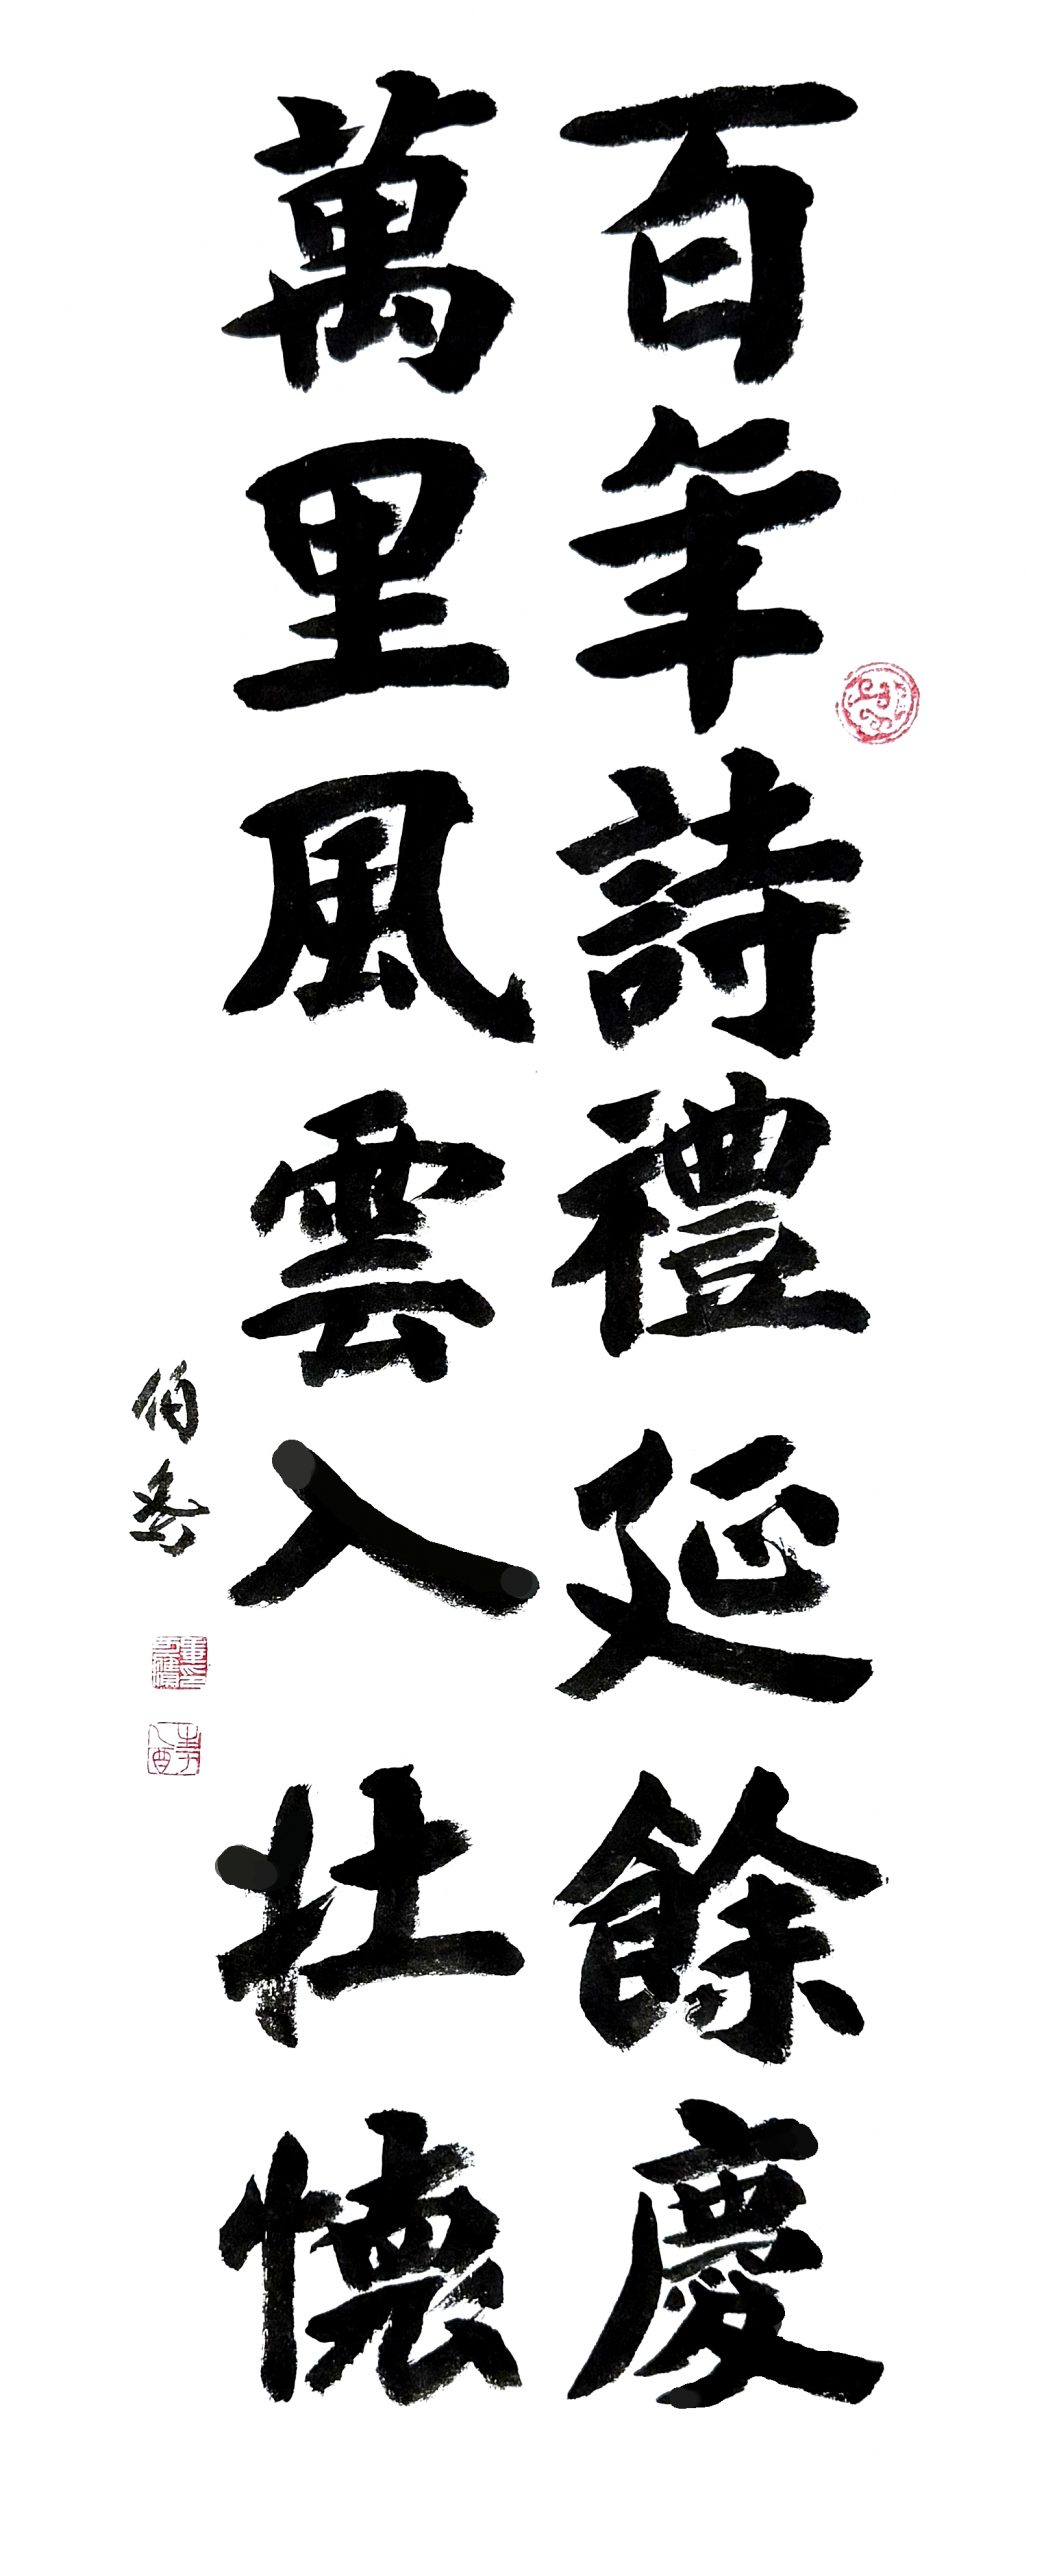 百年詩禮延餘慶
萬里風雲入壯懷
伯岳